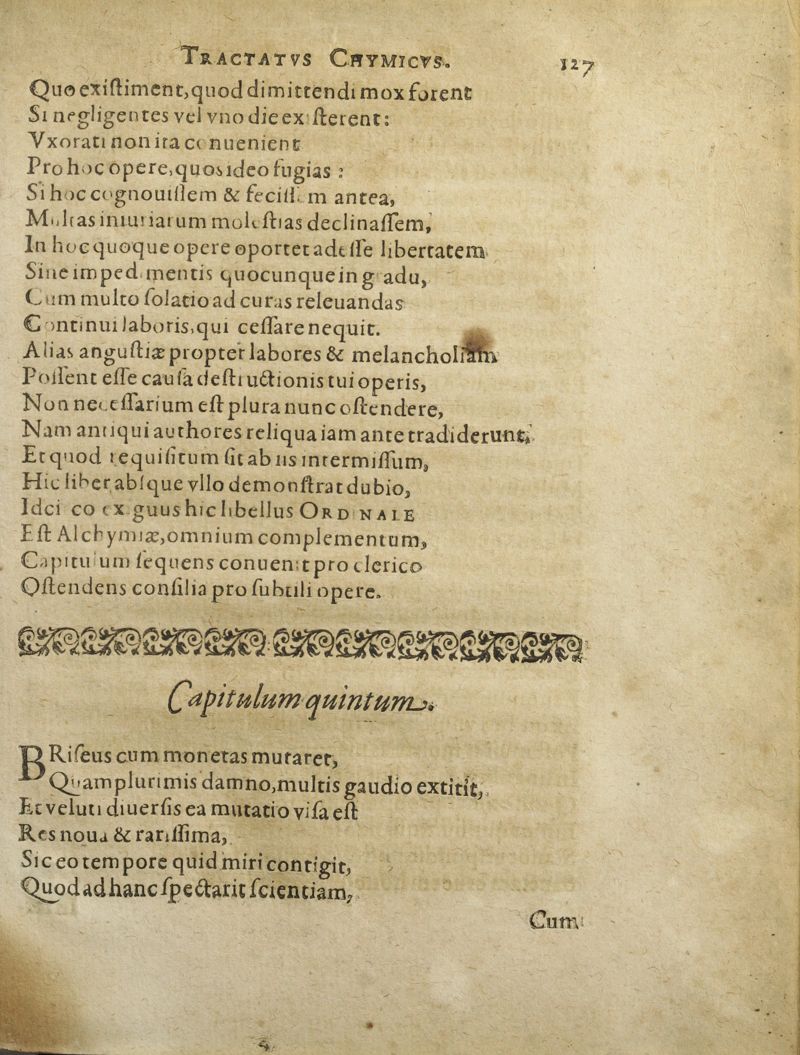 TRACTATVS CHYMICVS. 127
Quo exiſtiment, quod dimittendi mox forent
Si negligentes vel vno die exiſterent:
Vxorati non ita conuenient
Pro hoc opere, quos ideo fugias:
Si hoc cognouiſſem & feciſſem antea,
Multas iniuriarum moleſtias declinaſſem,
In hoc quoque opere oportet adeſſe libertatem
Sine impedimentis quocunque in gradu,
Cum multo ſolatio ad curas releuandas
Continui laboris, qui ceſſare nequit.
Alias anguſtiæ propter labores & melancholiam
Poſſent eſſe cauſa deſtructionis tui operis,
Non neceſſarium eſt plura nunc oſtendere,
Nam antiqui authores reliqua iam ante tradiderunt,
Et quod requiſitum ſit ab iis intermiſſum,
Hic liber abſque vllo demonſtrat dubio,
Idcirco exiguus hic libellus ORDINALE
Eſt Alchymiæ, omnium complementum,
Capitulum ſequens conuenit pro clerico
Oſtendens conſilia pro ſubtili opere.
Capitulum quintum.
BRiſeus cum monetas mutaret,
Quamplurimis damno, multis gaudio extitit,
Et veluti diuerſis ea mutatio viſa eſt
Res noua & rariſſima,
Sic eo tempore quid miri contigit,
Quod ad hanc ſpectarit ſcientiam,
Cum